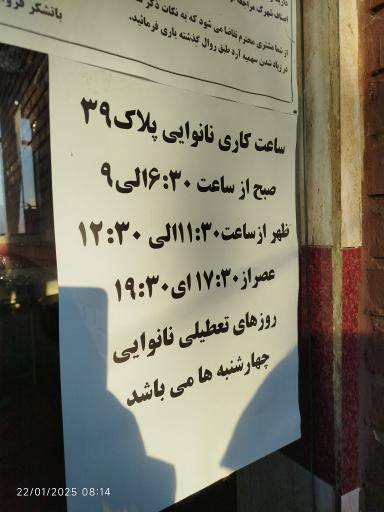 اصناف شهرک مراجعه
از شما مشتری محترم تقاضا می شود که به نکات ذکر ش
در زیاد شدن سهمیه آرد طبق روال گذشته یاری فرمائید.
باتشکر فرو
ساعت کاری نانوایی پلاک۳۹
صبح از ساعت ۶:۳۰الی۹
ظهر ازساعت۱۱:۳۰الی ۱۲:۳۰
عصراز۱۷:۳۰ ای۱۹:۳۰
روزهای تعطیلی نانوایی
چهارشنبه ها می باشد
22/01/2025 08:14